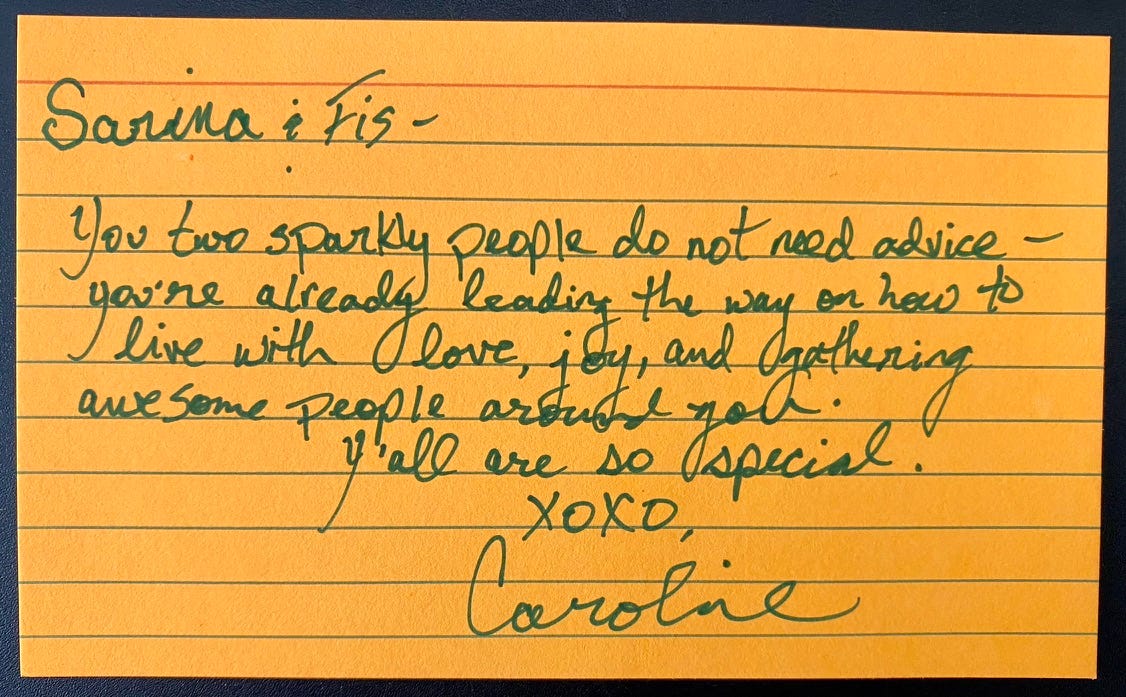 Sarina & Fis -
You two sparkly people do not need advice -
you're already leading the way on how to
live with love, joy, and gathering
awesome people around you.
Y'all are so special.
XOXO,
Caroline